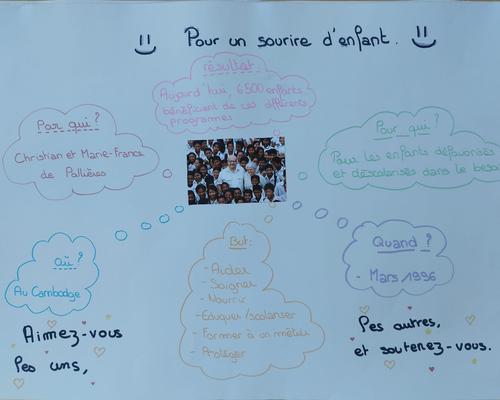 Pour un sourire d'enfant.
résultat:
Aujourd'hui, 6500 enfants
bénéficient de ces différents
programmes
Par qui ?
Christian et Marie-France
de Pallières
Pour qui ?
Pour les enfants défavorisés
et déscolarisés dans le beso
Où ?
Au Cambodge
But:
- Aider
- Soigner
- Nourrir
- Eduquer/scolariser
- Former à un métier
- Protéger
Quand ?
- Mars 1996
Aimez-vous
les uns,
les autres,
et soutenez-vous.